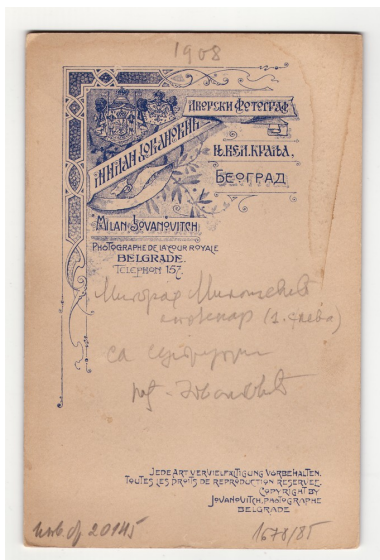 1908
ДВОРСКИ ФОТОГРАФ
МИЛАН ЈОВАНОВИЋ
Њ. ВЕЛ. КРАЉА.
БЕОГРАД
MILAN JOVANOVITCH
PHOTOGRAPHE DE LA COUR ROYALE
BELGRADE.
TELEPHON 157.
Милоград Милошевић
са супругом
рођ.
JEDE ART VERVIELFÄLTIGUNG VORBEHALTEN.
TOUTES LES DROITS DE REPRODUCTION RESERVEE.
COPYRIGHT BY
JOVANOVITCH, PHOTOGRAPHE
BELGRADE
20145
1678/85